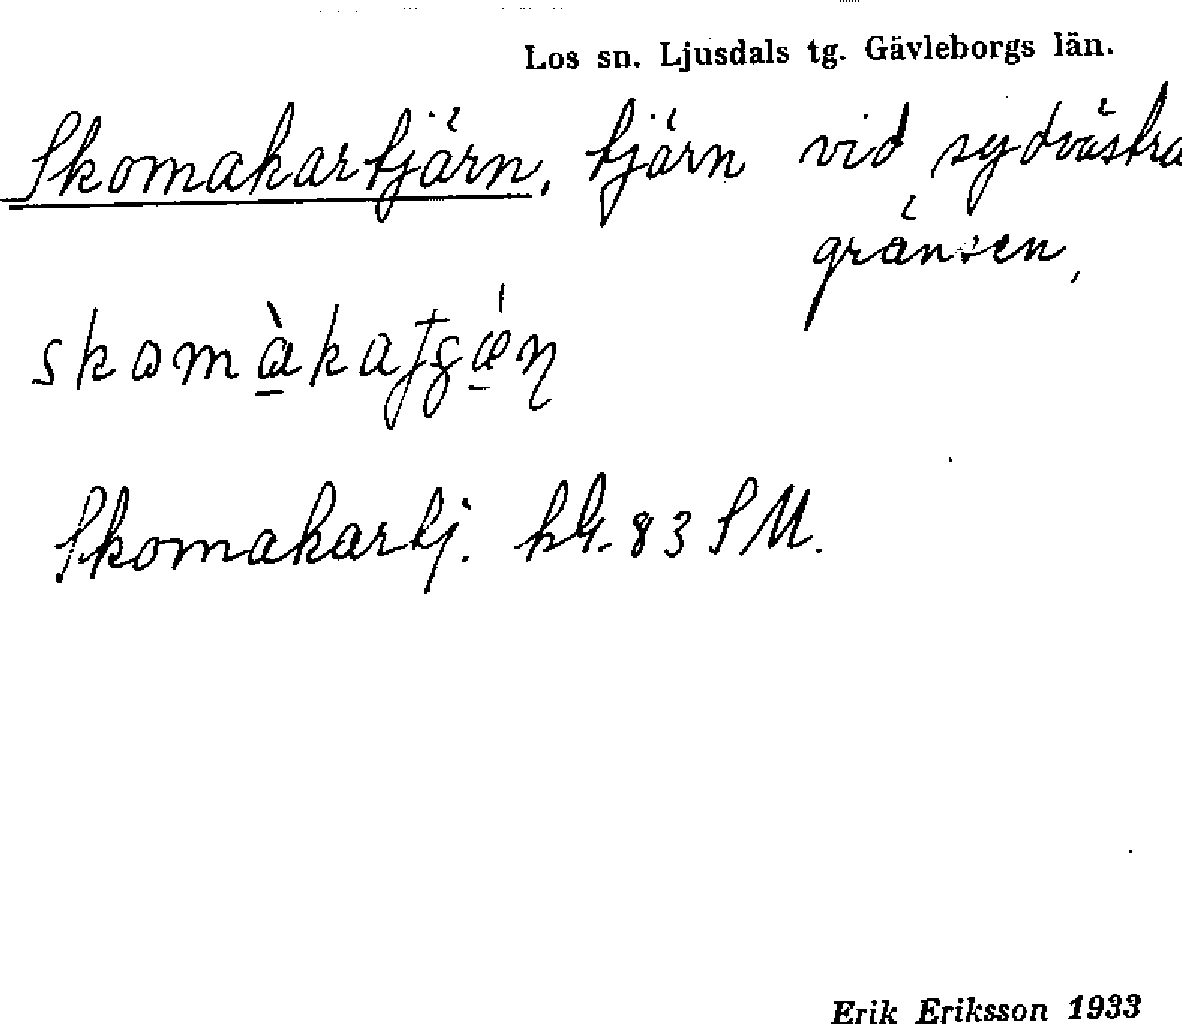 Los sn. Ljusdals tg. Gävleborgs län.
Skomakartjärn, tjärn vid sydvästra
gränsen,
Skomakartj. hbl. 83 SM.
Erik Eriksson 1933